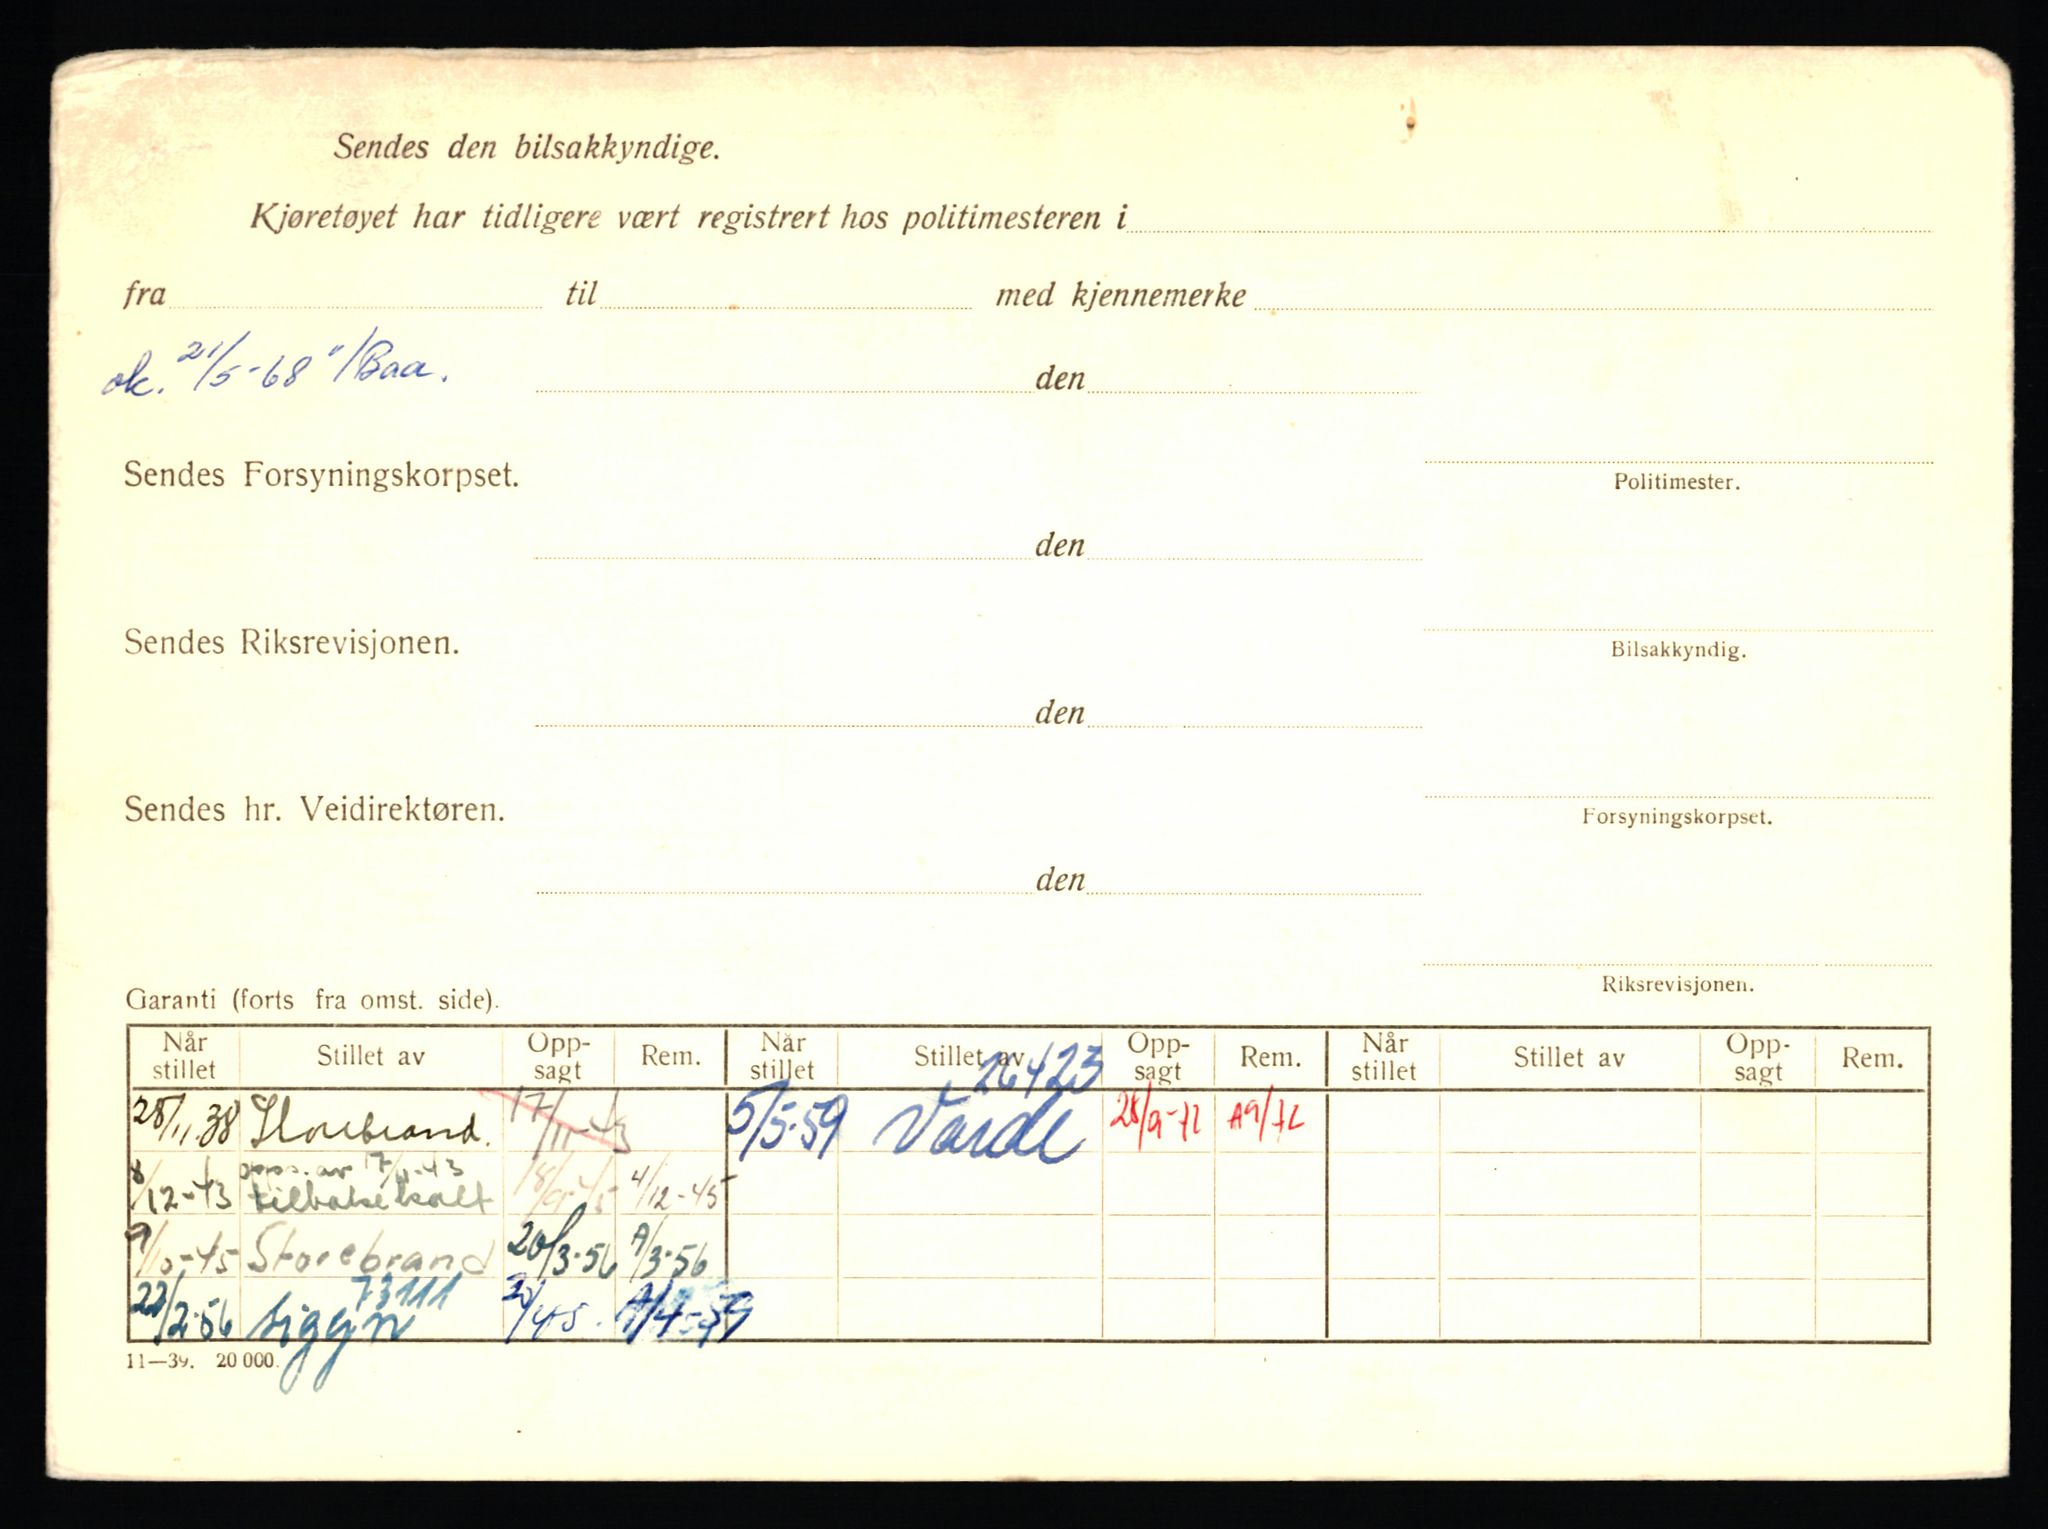 Sendes den bilsakkyndige.
Kjøretøyet har tidligere vært registrert hos politimesteren i
fra til med kjennemerke
ok. 21/5-68 "/Baa. den
Sendes Forsyningskorpset.
Politimester.
den
Sendes Riksrevisjonen.
Bilsakkyndig.
den
Sendes hr. Veidirektøren.
Forsyningskorpset.
den
Riksrevisjonen.
Garanti (forts fra omst. side).
Når stillet Stillet av Opp-sagt Rem. Når stillet Stillet av Opp-sagt Rem. Når stillet Stillet av Opp-sagt Rem.
26423
28/11.38 Storebrand. 17/11-43 5/5-59 Varde 28/9-72 A9/72
opps. av 17/11-43
8/12-43 tilbakekalt 18/9-45 4/12-45
9/10-45 Storebrand 20/3-56 A/3-56
73111
22/2-56 Sigyn A/4-59
11—39. 20 000.